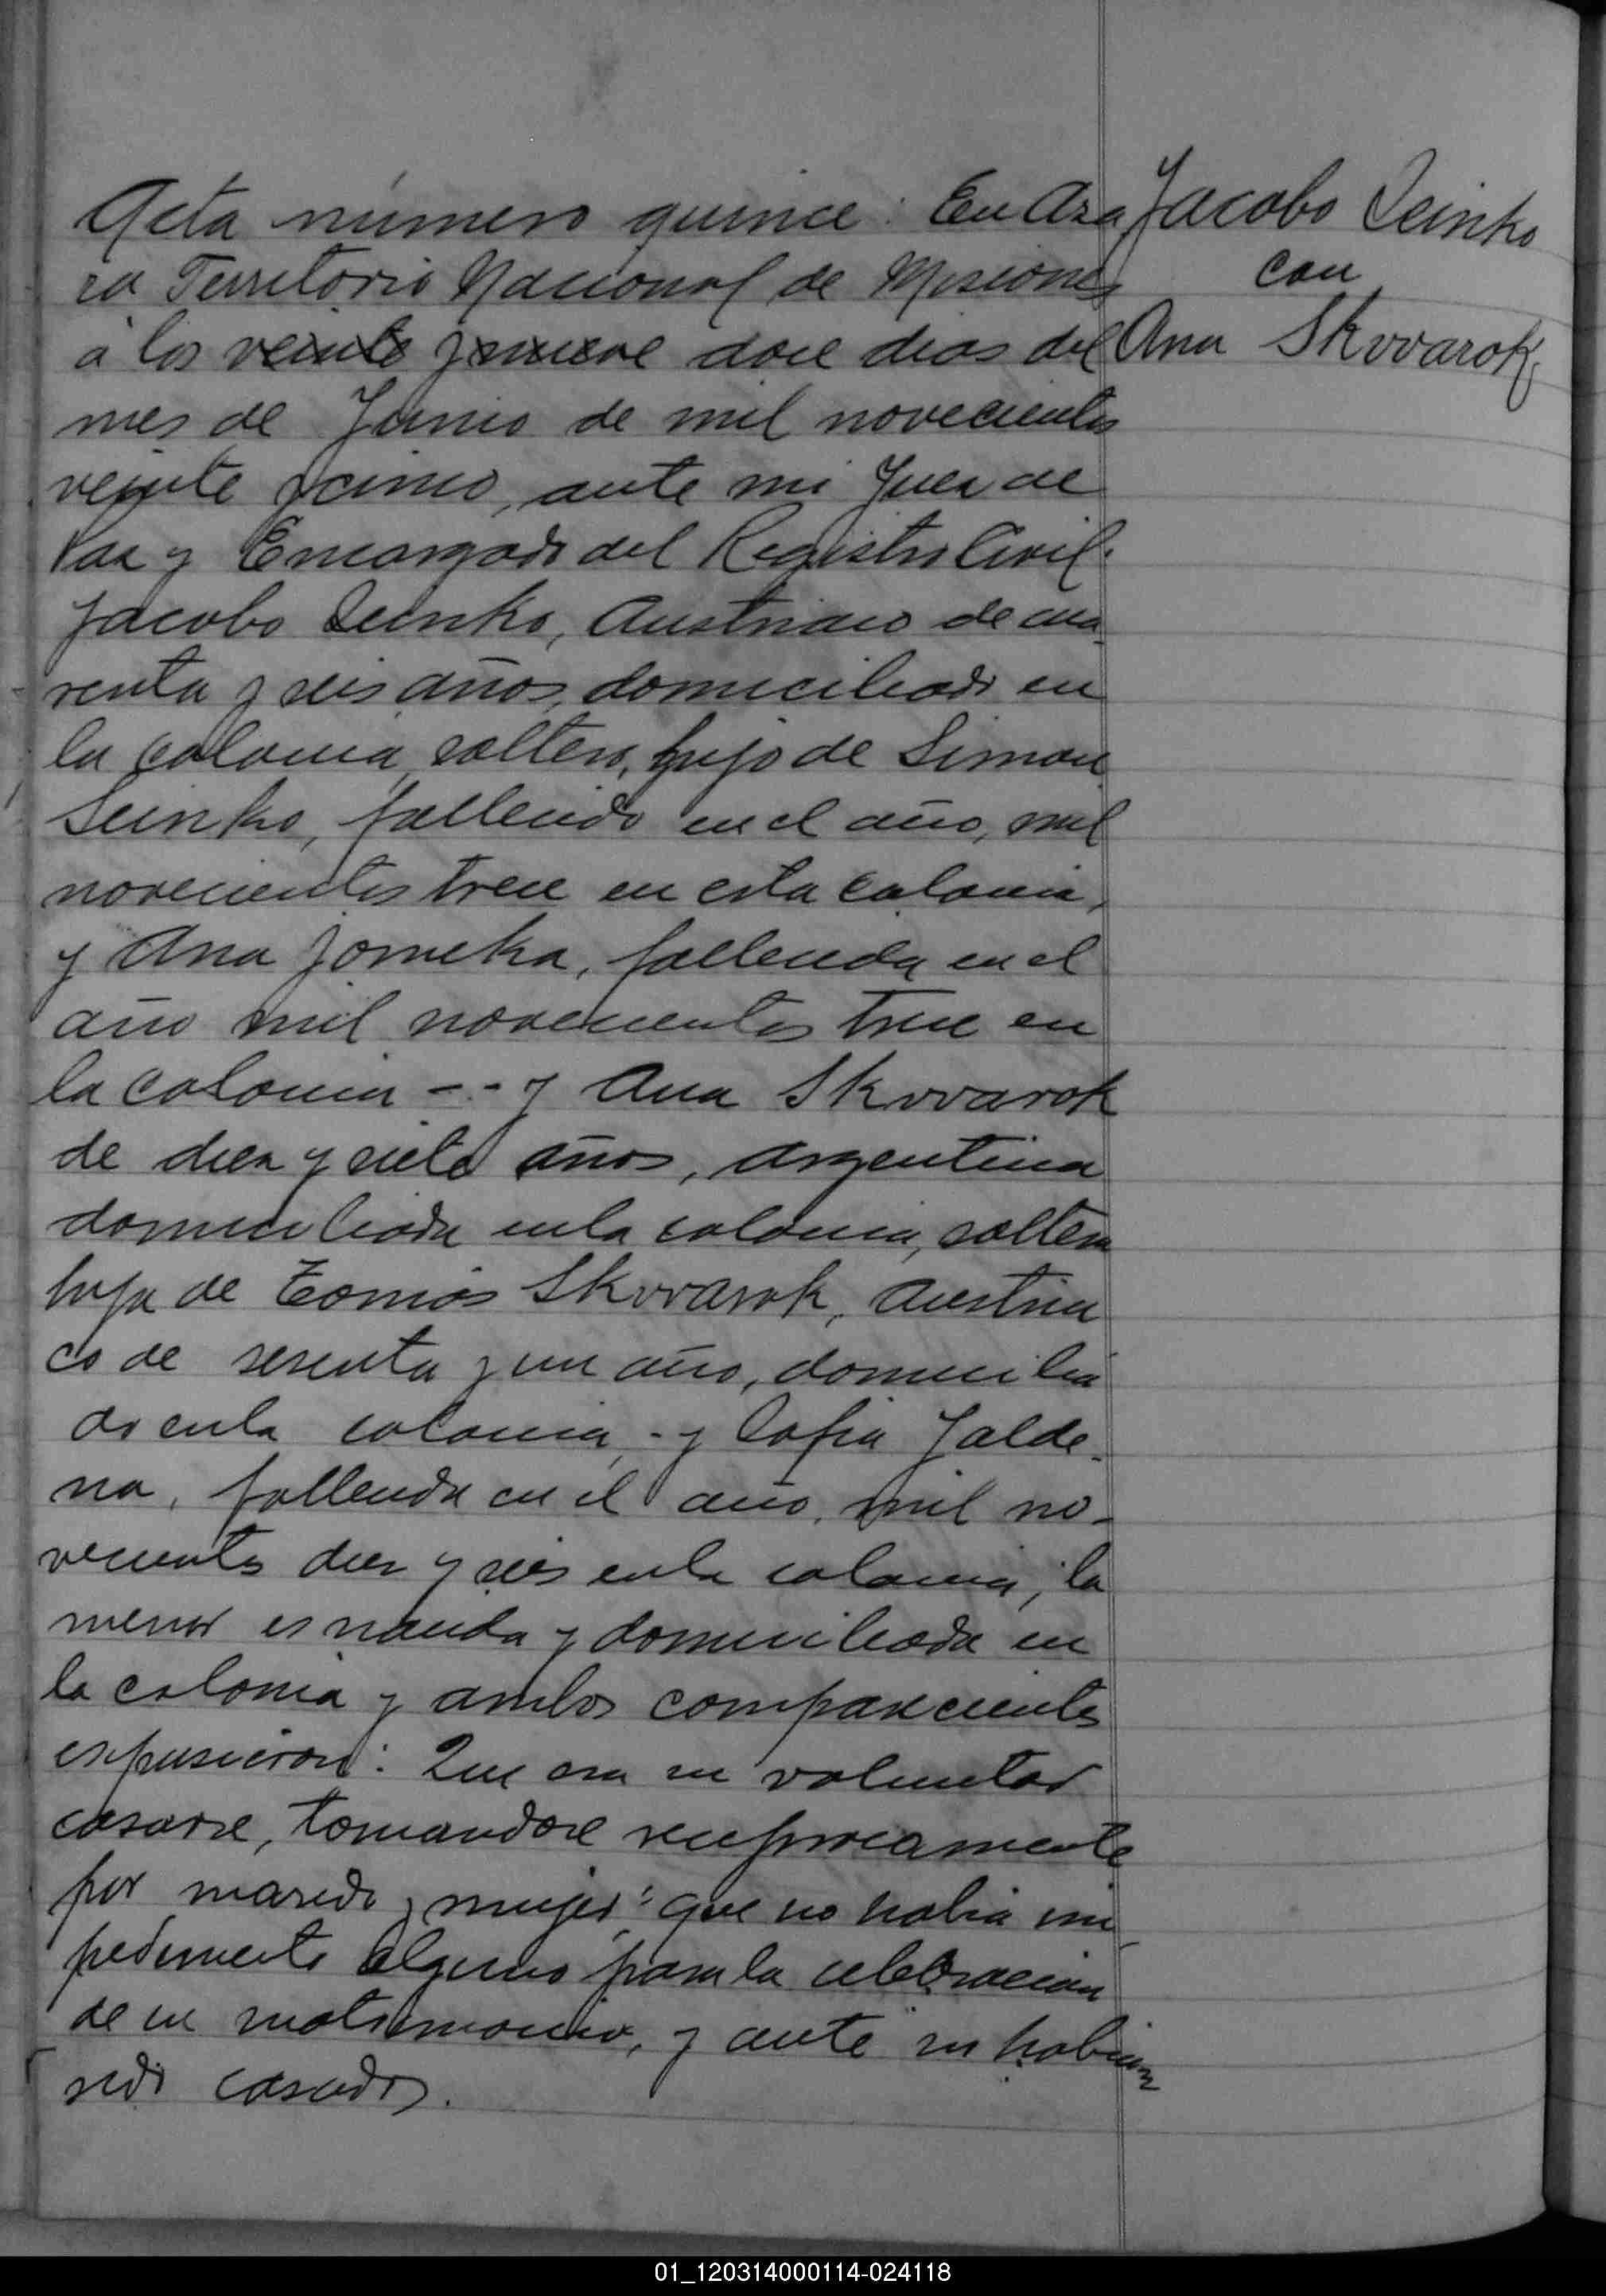 Acta número quince: En Aza
ra Territorio Nacional de Misiones
á los veinte y nueve doce dias del
mes de Junio de mil novecientos
veinte y cinco, ante mi Juez de
Paz y Encargado del Registro Civil:
Jacobo Seinko, Austriaco de cua
renta y seis años, domiciliado en
la colonia, soltero, hijo de Simon
Seinko, fallecido en el año, mil
novecientos trece en esta colonia,
y Ana Jomeka, fallecida en el
año mil novecientos trece en
la colonia -.- y Ana Skvvarok
de diez y siete años, argentina
domiciliada en la colonia, soltera
hija de Tomás Skvvarok, Austria
co de sesenta y un año, domicilia
do en la colonia, - y Sofia Jalde-
na, fallecida en el año, mil no-
vecientos diez y seis en la colonia; la
menor es nacida y domiciliada en
la colonia y ambos comparecientes
expusieron: Que era su voluntad
casarse, tomandose reciprocamente
por marido y mujer: que no habia im
pedimento alguno para la celebracion
de su matrimonio, y ante su habian
sido casados.
Jacobo Seinko
con
Ana Skvvarok
01_120314000114-024118